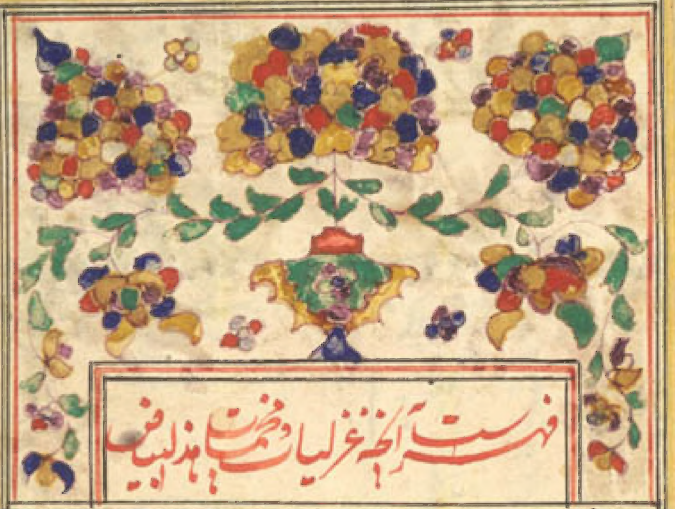 فهرست آنچه غزلیات و مخمسات هذالبیاض